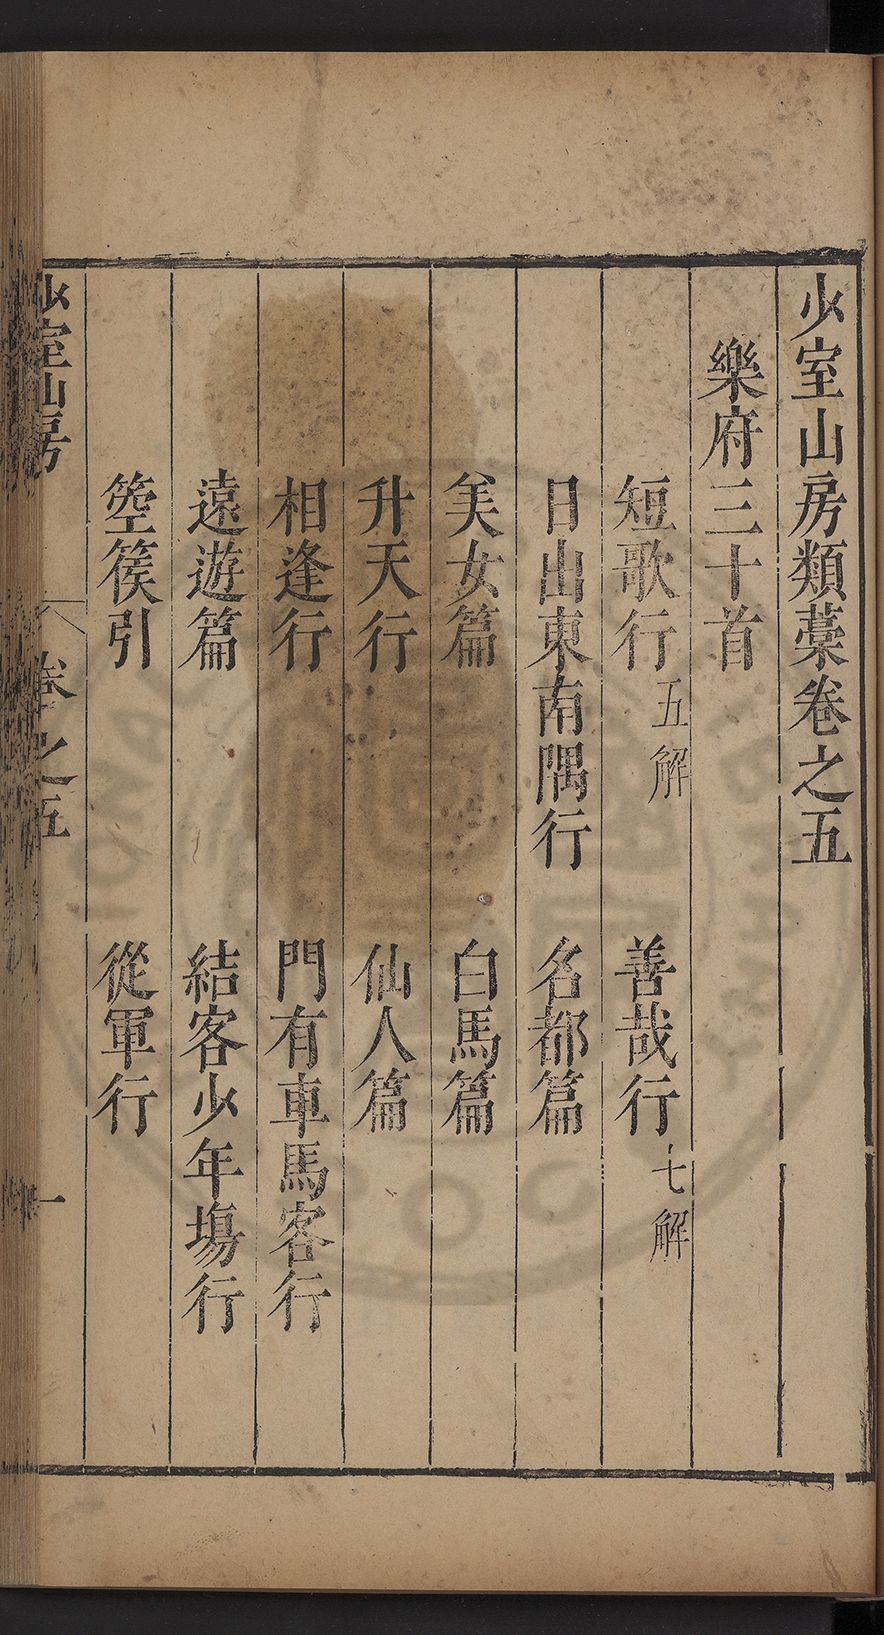 少室山房類藁卷之五
樂府三十首
短歌行 五解 善哉行 七解
日出東南隅行 名都篇
美女篇 白馬篇
升天行 仙人篇
相逢行 門有車馬客行
遠遊篇 結客少年塲行
箜篌引 從軍行
少室山房 卷之五 一